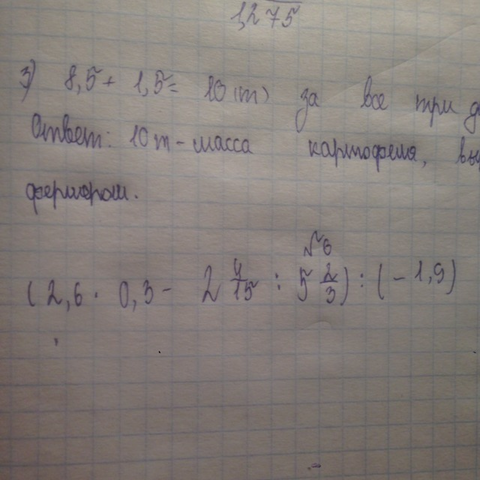 1,275
3) 8,5 + 1,5 = 10 (т) за все три
Ответ: 10 т - масса картофеля,
фермером.
√6
(2,6 · 0,3 - 2 4/15 : 5 2/3) : (-1,9)